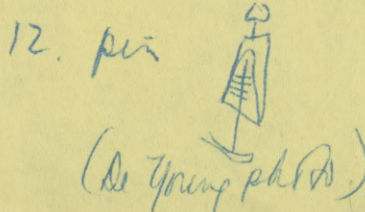 12. pin
(De Young photo.)